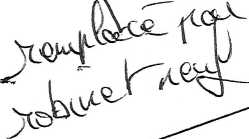 remplacé par
robinet neuf